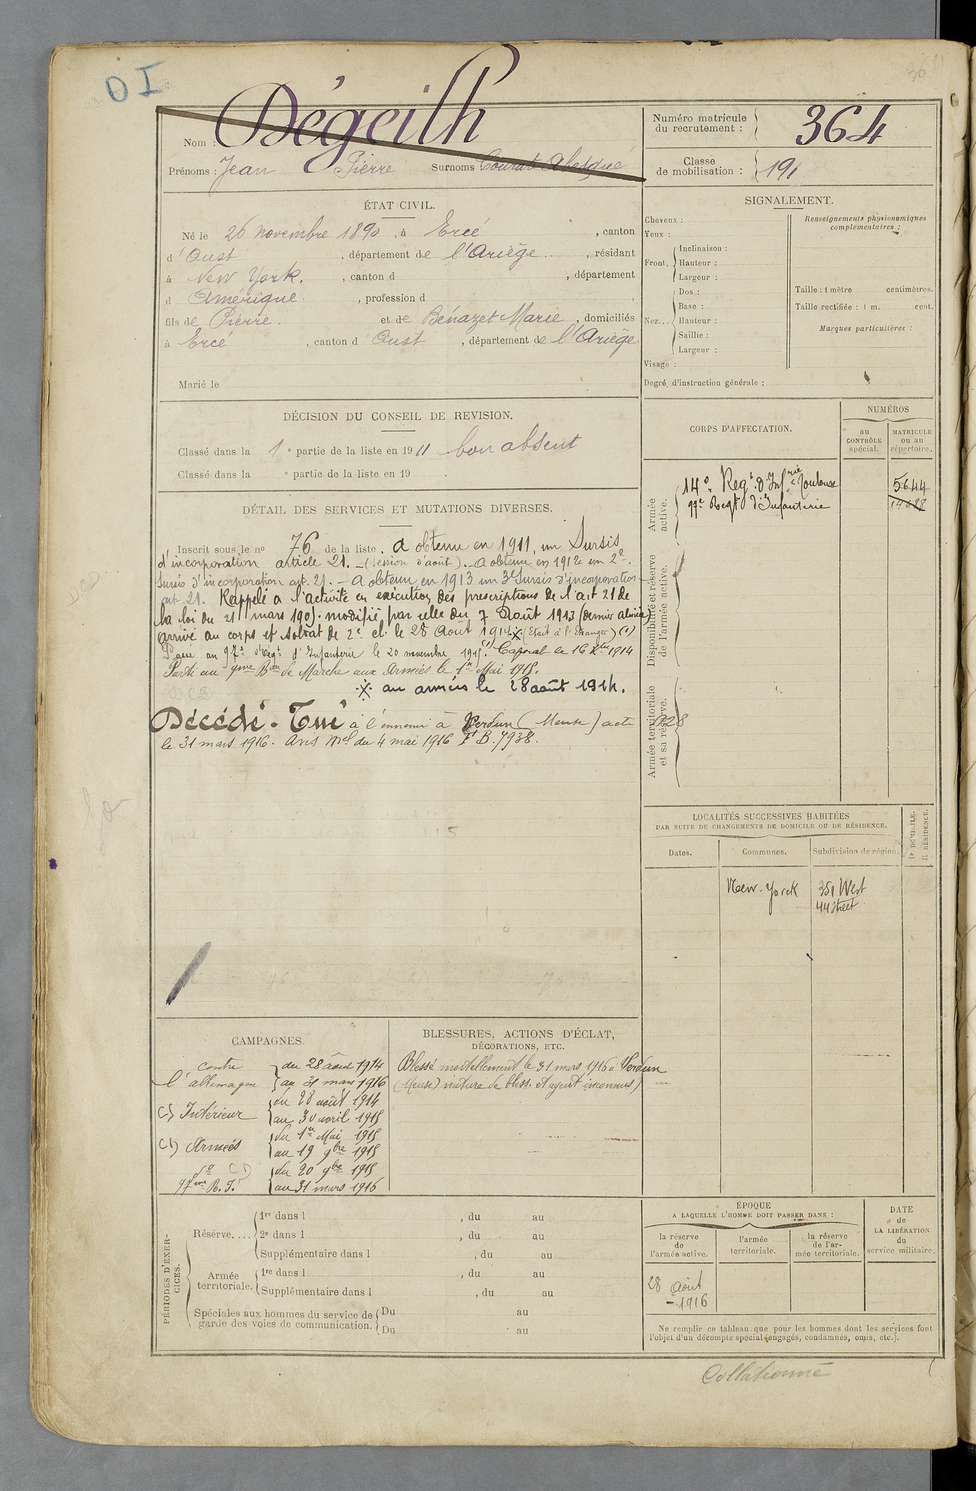 DI
Nom : Dégeilh
Prénoms : Jean Pierre Surnoms
Numéro matricule du recrutement : 364
Classe de mobilisation : 191
ÉTAT CIVIL.
Né le 26 novembre 1890, à Ercé, canton
d'Oust, département de l'Ariège, résidant
à New York, canton d , département
d Amérique, profession d ,
fils de Pierre et de Bénazet Marie, domiciliés
à Ercé, canton d Oust, département de l'Ariège
Marié le
SIGNALEMENT.
Cheveux :
Yeux :
Front.
Inclinaison :
Hauteur :
Largeur :
Nez...
Dos :
Base :
Hauteur :
Saillie :
Largeur :
Visage :
Renseignements physionomiques complémentaires :
Taille : 1 mètre centimètres.
Taille rectifiée : 1 m. cent.
Marques particulières :
Degré d'instruction générale :
DÉCISION DU CONSEIL DE REVISION.
Classé dans la 1e partie de la liste en 1911 bon absent
Classé dans la e partie de la liste en 19 .
CORPS D'AFFECTATION.
NUMÉROS
AU CONTRÔLE spécial.
MATRICULE ou au répertoire.
Armée active.
14e Regt. d'Infrie Toulouse 5644
97e Regt d'Infanterie
Disponibilité et réserve de l'armée active.
Armée territoriale et sa réserve.
DÉTAIL DES SERVICES ET MUTATIONS DIVERSES.
Inscrit sous le no 76 de la liste. A obtenu en 1911, un Sursis
d'incorporation article 21. (session d'août). A obtenu en 1912 un 2e
sursis d'incorporation art. 21. — A obtenu en 1913 un 3e Sursis d'incorporation
art. 21. Rappelé à l'activité en exécution des prescriptions de l'art 21 de
la loi du 21 mars 1905 modifié par celle du 7 Août 1913 (dernier alinéa)
arrivé au corps et soldat de 2e cl. le 28 Août 1914 x (Etait à l'Etranger) (1)
Passé au 97e Régt d'Infanterie le 20 novembre 1915. (1) Caporal le 16 Xbre 1914
Parti au 9eme Bon de Marche aux Armées le 1er Mai 1915.
x aux armées le 28 août 1914.
Décédé - Tué à l'ennemi à Verdun (Meuse) acte 828
le 31 mars 1916. Avis Mel du 4 mai 1916 Ft B. 7938.
LOCALITÉS SUCCESSIVES HABITÉES
PAR SUITE DE CHANGEMENTS DE DOMICILE OU DE RÉSIDENCE.
Dates.
Communes.
Subdivision de région.
D. DOMICILE.
R. RÉSIDENCE.
New-Yorck 351 West
44 Street
CAMPAGNES.
contre l'allemagne du 28 août 1914
au 31 mars 1916
C) Intérieur du 28 août 1914
au 30 avril 1915
CD Armées du 1er Mai 1915
au 19 9bre 1915
do CD du 20 9bre 1915
97eme R.I. au 31 mars 1916
BLESSURES, ACTIONS D'ÉCLAT,
DÉCORATIONS, ETC.
Blessé mortellement le 31 mars 1916 à Verdun
(Meuse) nature de bless. et agent inconnus)
PÉRIODES D'EXERCICES.
Réserve....
1re dans l , du au
2e dans l , du au
Supplémentaire dans l , du au
Armée territoriale.
1re dans l , du au
Supplémentaire dans l , du au
Spéciales aux hommes du service de garde des voies de communication.
Du au
Du au
ÉPOQUE
A LAQUELLE L'HOMME DOIT PASSER DANS :
la réserve de l'armée active.
l'armée territoriale.
la réserve de l'armée territoriale.
DATE de LA LIBÉRATION du service militaire.
28 août
1916
Ne remplir ce tableau que pour les hommes dont les services font
l'objet d'un décompte spécial (engagés, condamnés, omis, etc.).
Collationné